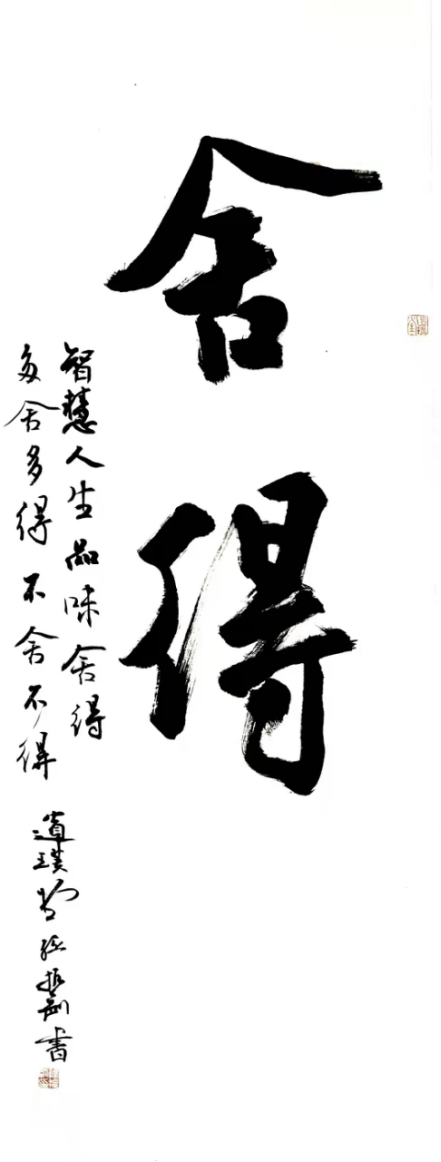 舍得
智慧人生品味舍得
多舍多得不舍不得
遺璞
書